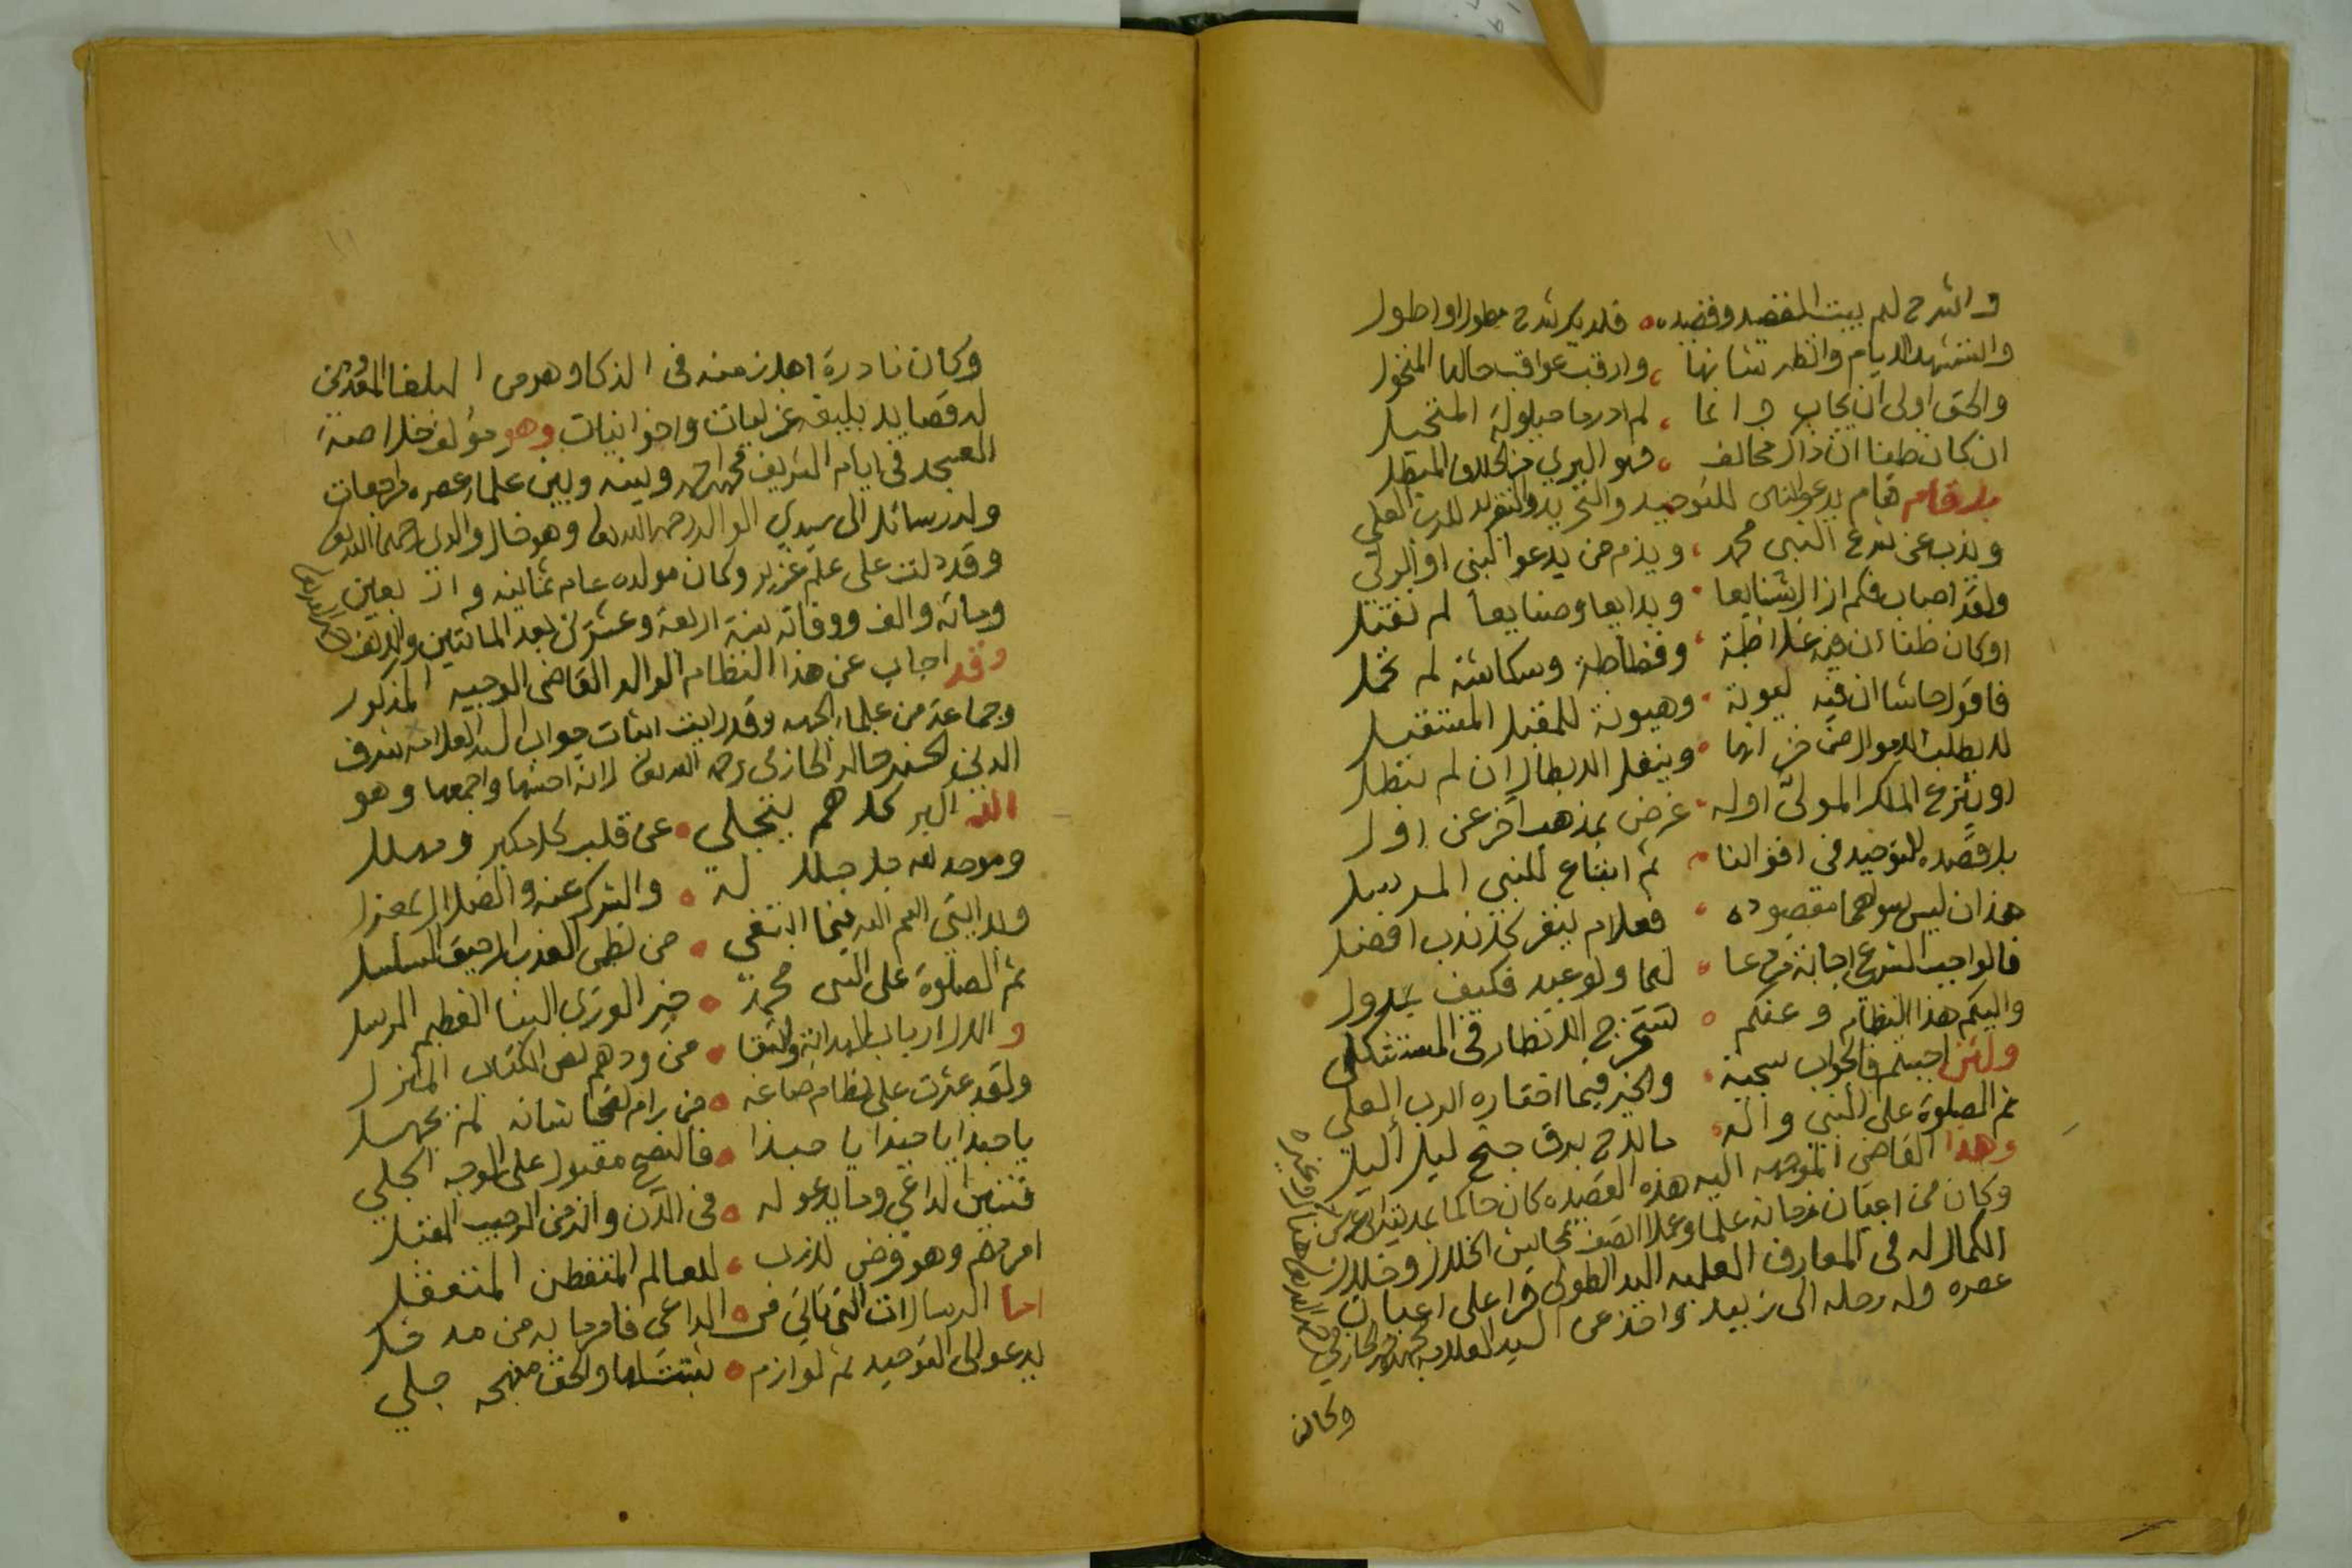 والشرح لم يبت المفصد وفضيده فلديك شرح مطول او اطول
والستشهد الايام وانظر شانها وارقب عواقب حالها المتحول
والحق اولى ان يجاب وانما لم ادر ما حيلولة المتحيل
ان كان ظنا ان ذاك مخالف فهو البري من الخلاف المبطل
بل قام يدعو الناس للتوحيد والتجريد والتفريد للرب العلي
ويذب عن شرع النبي محمد ويذم من يدعو النبي او الولي
ولقد اصاب فكم ازال شنايعا وبدايعا وصنايعا لم تقبل
او كان ظنا ان فيه غلاظة وفظاظة وسكاشة لم تحمل
فاقول حاشا ان فيه ليونة وهيونة للمقبل المستقبل
لا يطلب الاموال من خزانها وينفل الابطال ان لم تبطل
او ينزع الملك المولى اوله غرض بمذهب اخر عن اول
بل قصده التوحيد في اقوالنا ثم اتباع للنبي المرسل
هذان ليس سواهما مقصوده فعلام ينفر كل ندب افضل
فالواجب الشرعي اجابة من دعا لهما ولو عبد فكيف بدول
واليكم هذا النظام وعنكم تستخرج الانظار في المستشكل
ولئن اجبتم فالجواب سجية والخير فيما اختاره الرب العلي
ثم الصلوة على النبي واله ما لاح برق جنح ليل اليل
وهذا القاضي الموجهه اليه هذه القصيده كان حاكما بمدينة ابي عريش
وكان من اعيان زمانه علما وعملا اتصف بمحاسن الخلال وخلال
الكمال له في المعارف العلميه اليد الطولى قرا على اعيان
عصره وله رحله الى زبيد واخذ عن السيد العلامه محمد الحازمي
وكان
وكان نادرة اهل زمنه في الذكا وهو من البلغا المفوهين
له قصايد بليغه غزليات واخوانيات وهو مؤلف خلاصة
العسجد في ايام الشريف محمد احمد وبينه وبين علماء عصره مراجعات
وله رسائل الى سيدي الوالد رحمه الله تعالى وهو خال والدي رحمهما الله تعالى
وقد دلت على علم غزير وكان مولده عام ثمانيه واربعين
ومائة والف ووفاته سنة اربعة وعشرين بعد المائتين والالف
وقد اجاب عن هذا النظام الوالد القاضي الوجيه المذكور
وجماعة من علماء الجهه وقد رايت اثبات جواب السيد العلامه شرف
الدين الحسن خالد الحازمي رحمه الله تعالى لانه احسنها واجمعها وهو
الله اكبر كل هم ينجلي عن قلب كل مكبر ومهلل
وموحد لله جل جلاله والشرك عنه والضلال بمعزل
ثم الصلوة على النبي محمد خير الورى النبا العظيم المرسل
والال ارباب الهداية والتقا من ودهم نص الكتاب المنزل
ولقد عثرت على نظام صاغه من رام نصحا شانه لم يجهل
يا حبذا يا حبذا يا حبذا فالنصح مقبول على الوجه الجلي
فتبين الداعي وما يدعو له في الدين والزمن الرحيب المقبل
امر مهم وهو فرض لازب للعالم المتفطن المتعقل
اما الرسالات التي تاتي من الداعي فامر ما به من مدخل
يدعو الى التوحيد ثم لوازم والحق منهجه جلي